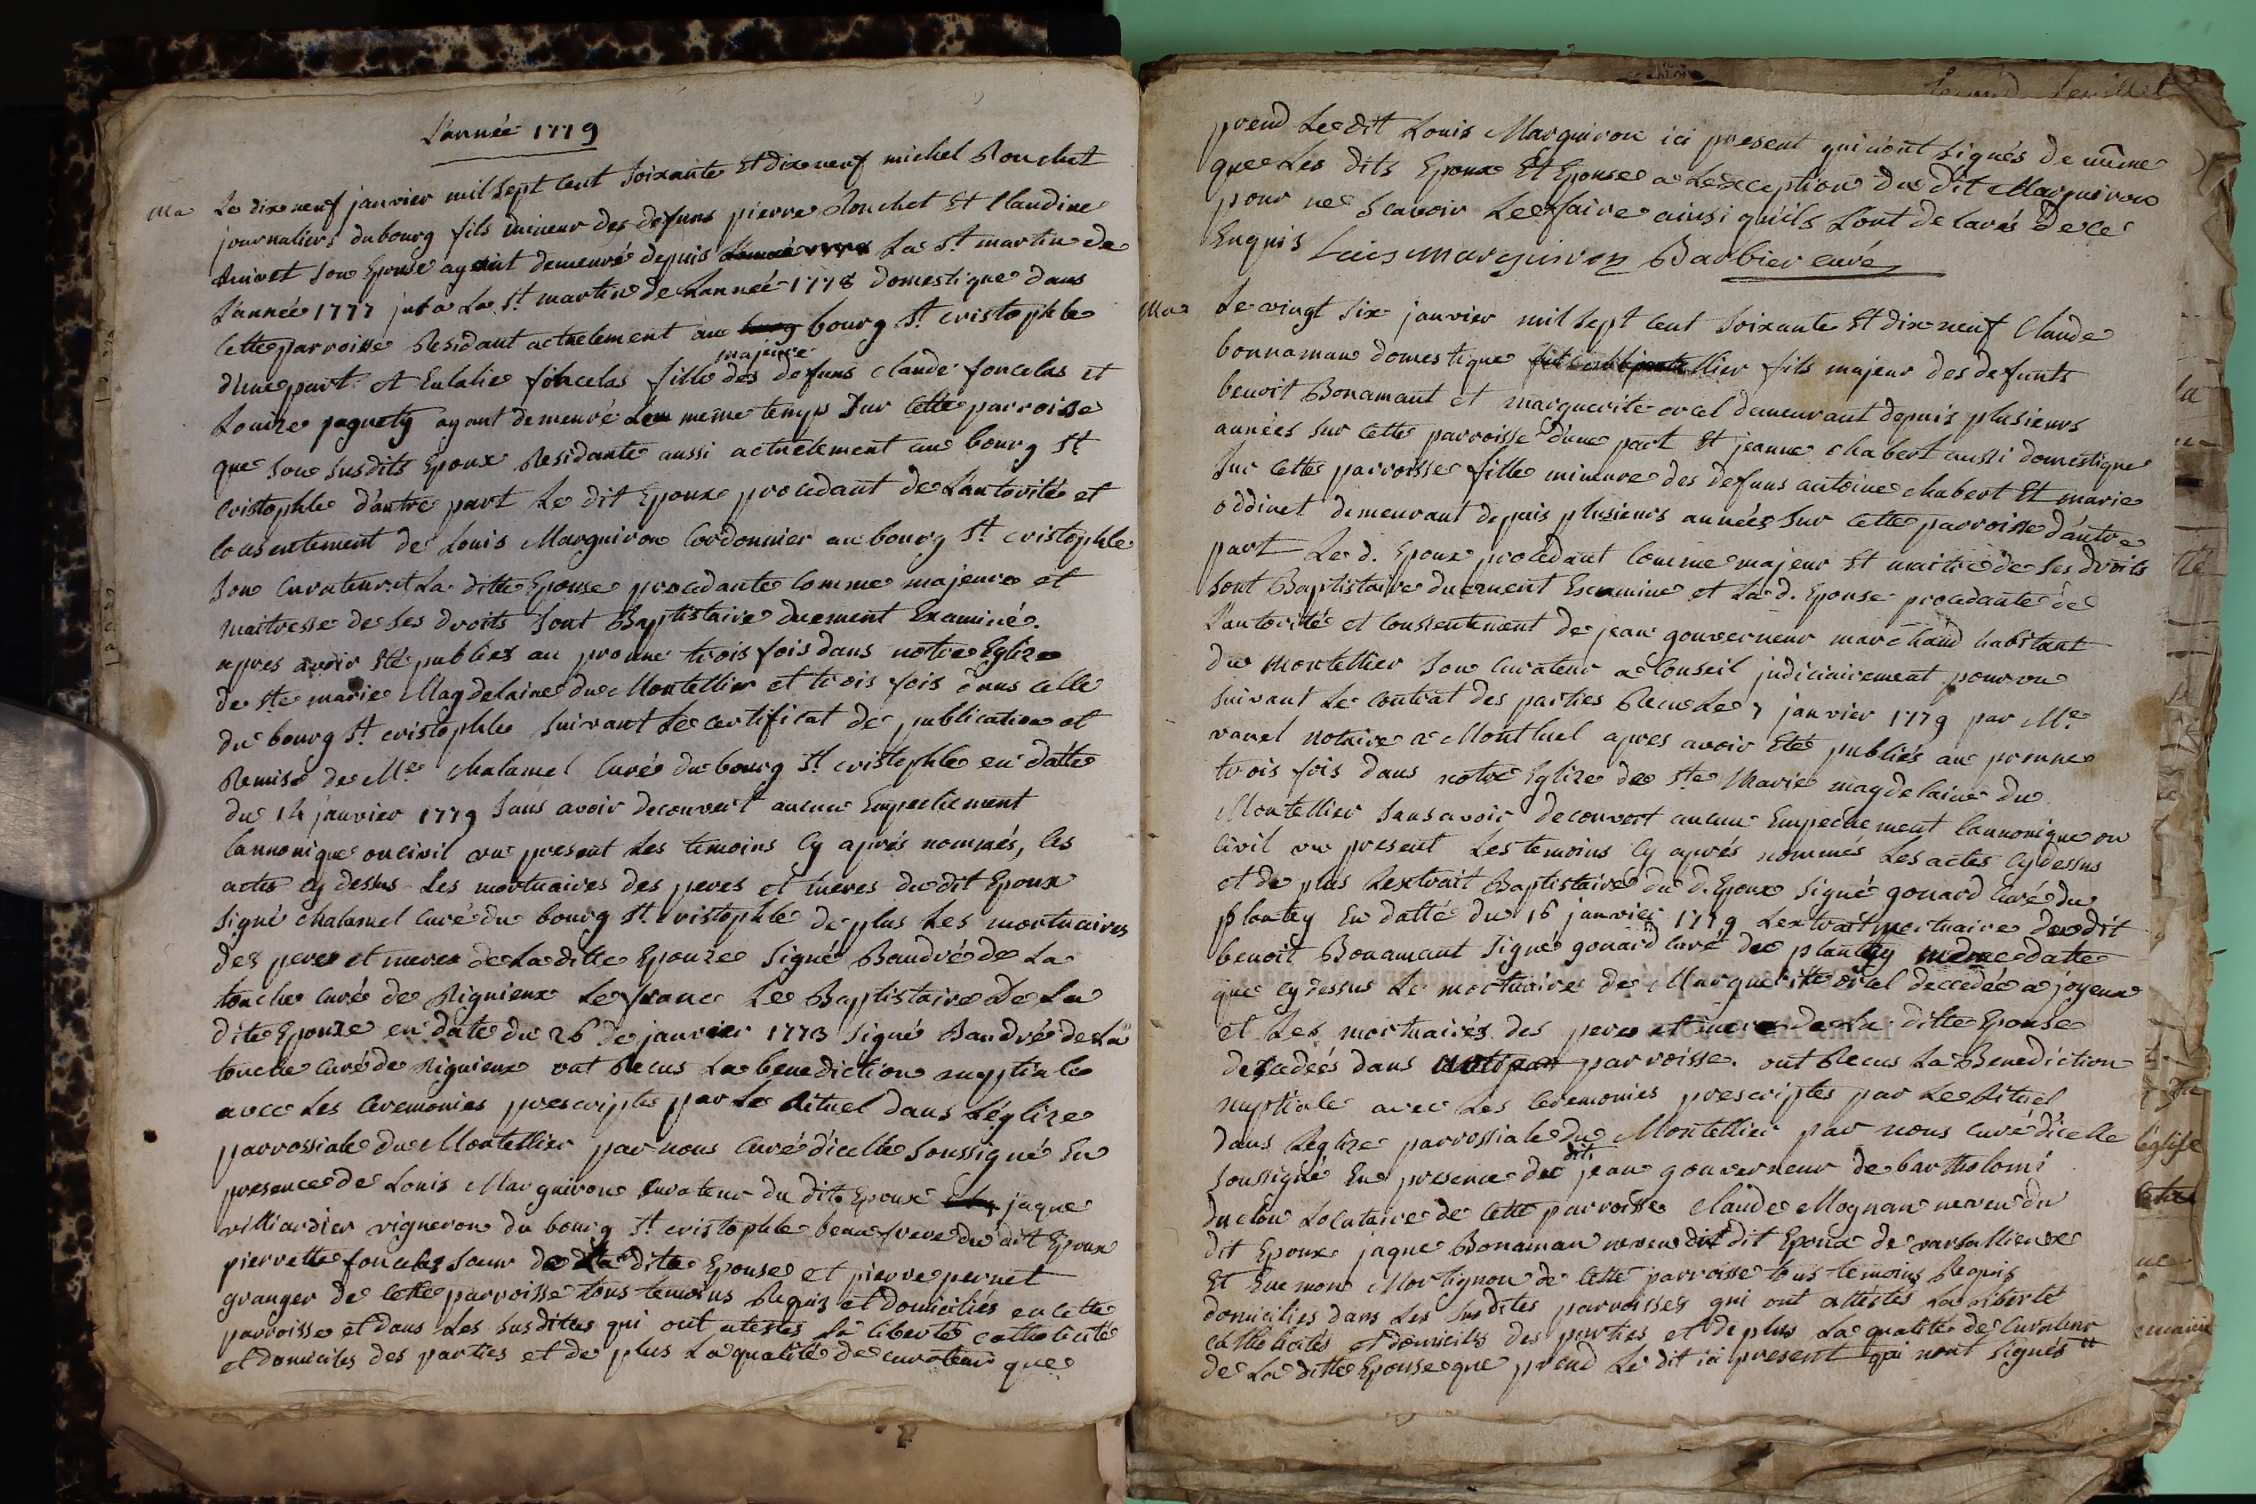 L'année 1779
Ma Le dix neuf janvier mil sept cent soixante et dix neuf michel Ronchet
journaliers du bourg fils mineur des defuns pierre Ronchet et Claudine
son Epouse ayant demeuré depuis La St martin de
L'année 1777 jusa La St martin de Lannée 1778 domestique dans
Cette parroisse Residant actuelement au bourg bourg St cristophle
d'une part et Eulalie foncelas fille majeure des defuns Claude foncelas et
Louize paguety ayant demeuré Le meme temps sur Cette parroisse
que son susdits Epoux Residante aussi actuelement au bourg St
Cristophle d'autre part Le dit Epoux procedant de L'autorité et
consentement de Louis Marguiron Cordonnier au bourg St cristophle
son Curateur et La ditte Epouse procedante Comme majeure et
maitresse de ses droits sont Baptistaire duement Examiné.
apres avoir eté publiez au prosne trois fois dans notre Eglize
de ste marie Magdelaine du Montellier et trois fois dans celle
du bourg St cristophle suivant Le certificat de publication et
Remise de Mre Chalamel Curé du bourg St cristophle en datte
du 14 janvier 1779 sans avoir decouvert aucun Empechement
Cannonique ou civil vu present Les temoins Cy aprés nommés, Les
actes cy dessus Les mortuaires des peres et meres du dit Epoux
signé Chalamel Curé du bourg St cristophle de plus Les mortuaires
des peres et meres de La ditte Epouze signé Baudré de La
touche curé de Rignieux Le franc Le Baptistaire De La
dite Epouze en date du 26 de janvier 1773 signé Baudré de La
touche Curé de Rignieux ont Recus La benediction nuptiale
avec Les Ceremonies prescriptes par Le Rituel dans L'églize
parrossiale du Montellier par nous Curé d'icelle soussigné En
presence de Louis Marguiron Curateur du dit Epoux jaque
villiardier vigneron du bourg St cristophle beaufrere du dit Epoux
pierrette foncelas soeur de La dite Epouse et pierre pernet
granger de cette parroisse tous temoins Requis et domiciliés en cette
parroisse et dans Les susdites qui ont atestés La liberté catholicité
et domiciles des parties et de plus La qualité de curateur que
prend Le dit Louis Marguiron ici present qui n'ont signés de même
que Les dits Epoux Et Epouse a L'exception du dit Marguiron
pour ne sçavoir Le faire ainsi qu'ils L'ont declarés de ce
Enquis Luis marguiron Barbier curé
Ma Le vingt six janvier mil sept cent soixante et dix neuf Claude
bonnaman domestique fils majeur des defunts
benoit Bonamant et marguerite orcel demeurant depuis plusieurs
années sur cette parroisse d'une part et jeanne chabert aussi domestique
sur cette parroisse fille mineure des defuns antoine chabert Et marie
oddinet demeurant depuis plusieurs années sur cette parroisse d'autre
part Le d. Epoux procedant Comme majeur et maitre de ses droits
sont Baptistaire duement Examine et La d. Epouse procedante de
L'autorité et consentement de jean gouverneur marchand habitant
du Montellier son Curateur a Conseil judiciairement pourvu
suivant Le contrat des parties Recu Le 7 janvier 1779 par Me
vanel notaire a Montluel apres avoir Eté publiés au prosne
trois fois dans notre Eglize de Ste Marie magdelaine du
Montellier sans avoir decouvert aucun Empechement Cannonique ou
Civil vu present Les temoins Cy aprés nommés Les actes Cy dessus
et de plus L'extrait Baptistaire du d. Epoux signé gonard Curé du
plantey En datté du 16 janvier 1779 L'extrait mortuaire du dit
benoit Bonamant signé gonard curé du plantey meme datte
que cy dessus Le mortuaire de Marguerite orcel decedée a joyeux
et Les mortuaires des peres et mere de La ditte Epouse
decedées dans parroisse. ont Recus La Benediction
nuptiale avec Les Ceremonies prescriptes par Le Rituel
dans L'eglize parrossiale du Montellier par nous curé d'icelle
soussigné En presence du dit jean gouverneur de bartholomi
duclou Locataire de Cette parroisse Claude Mognan neveu du
dit Epoux jaque Bonaman neveu du dit Epoux de varsallieux
Et Mortignon de Cette parroisse tous temoins Requis
domiciliés dans Les susdites parroisses qui ont attestés La liberté
catholicités et domiciles des parties et de plus La qualité de Curateur
de La ditte Epouse que prend Le dit ici present qui nont signés